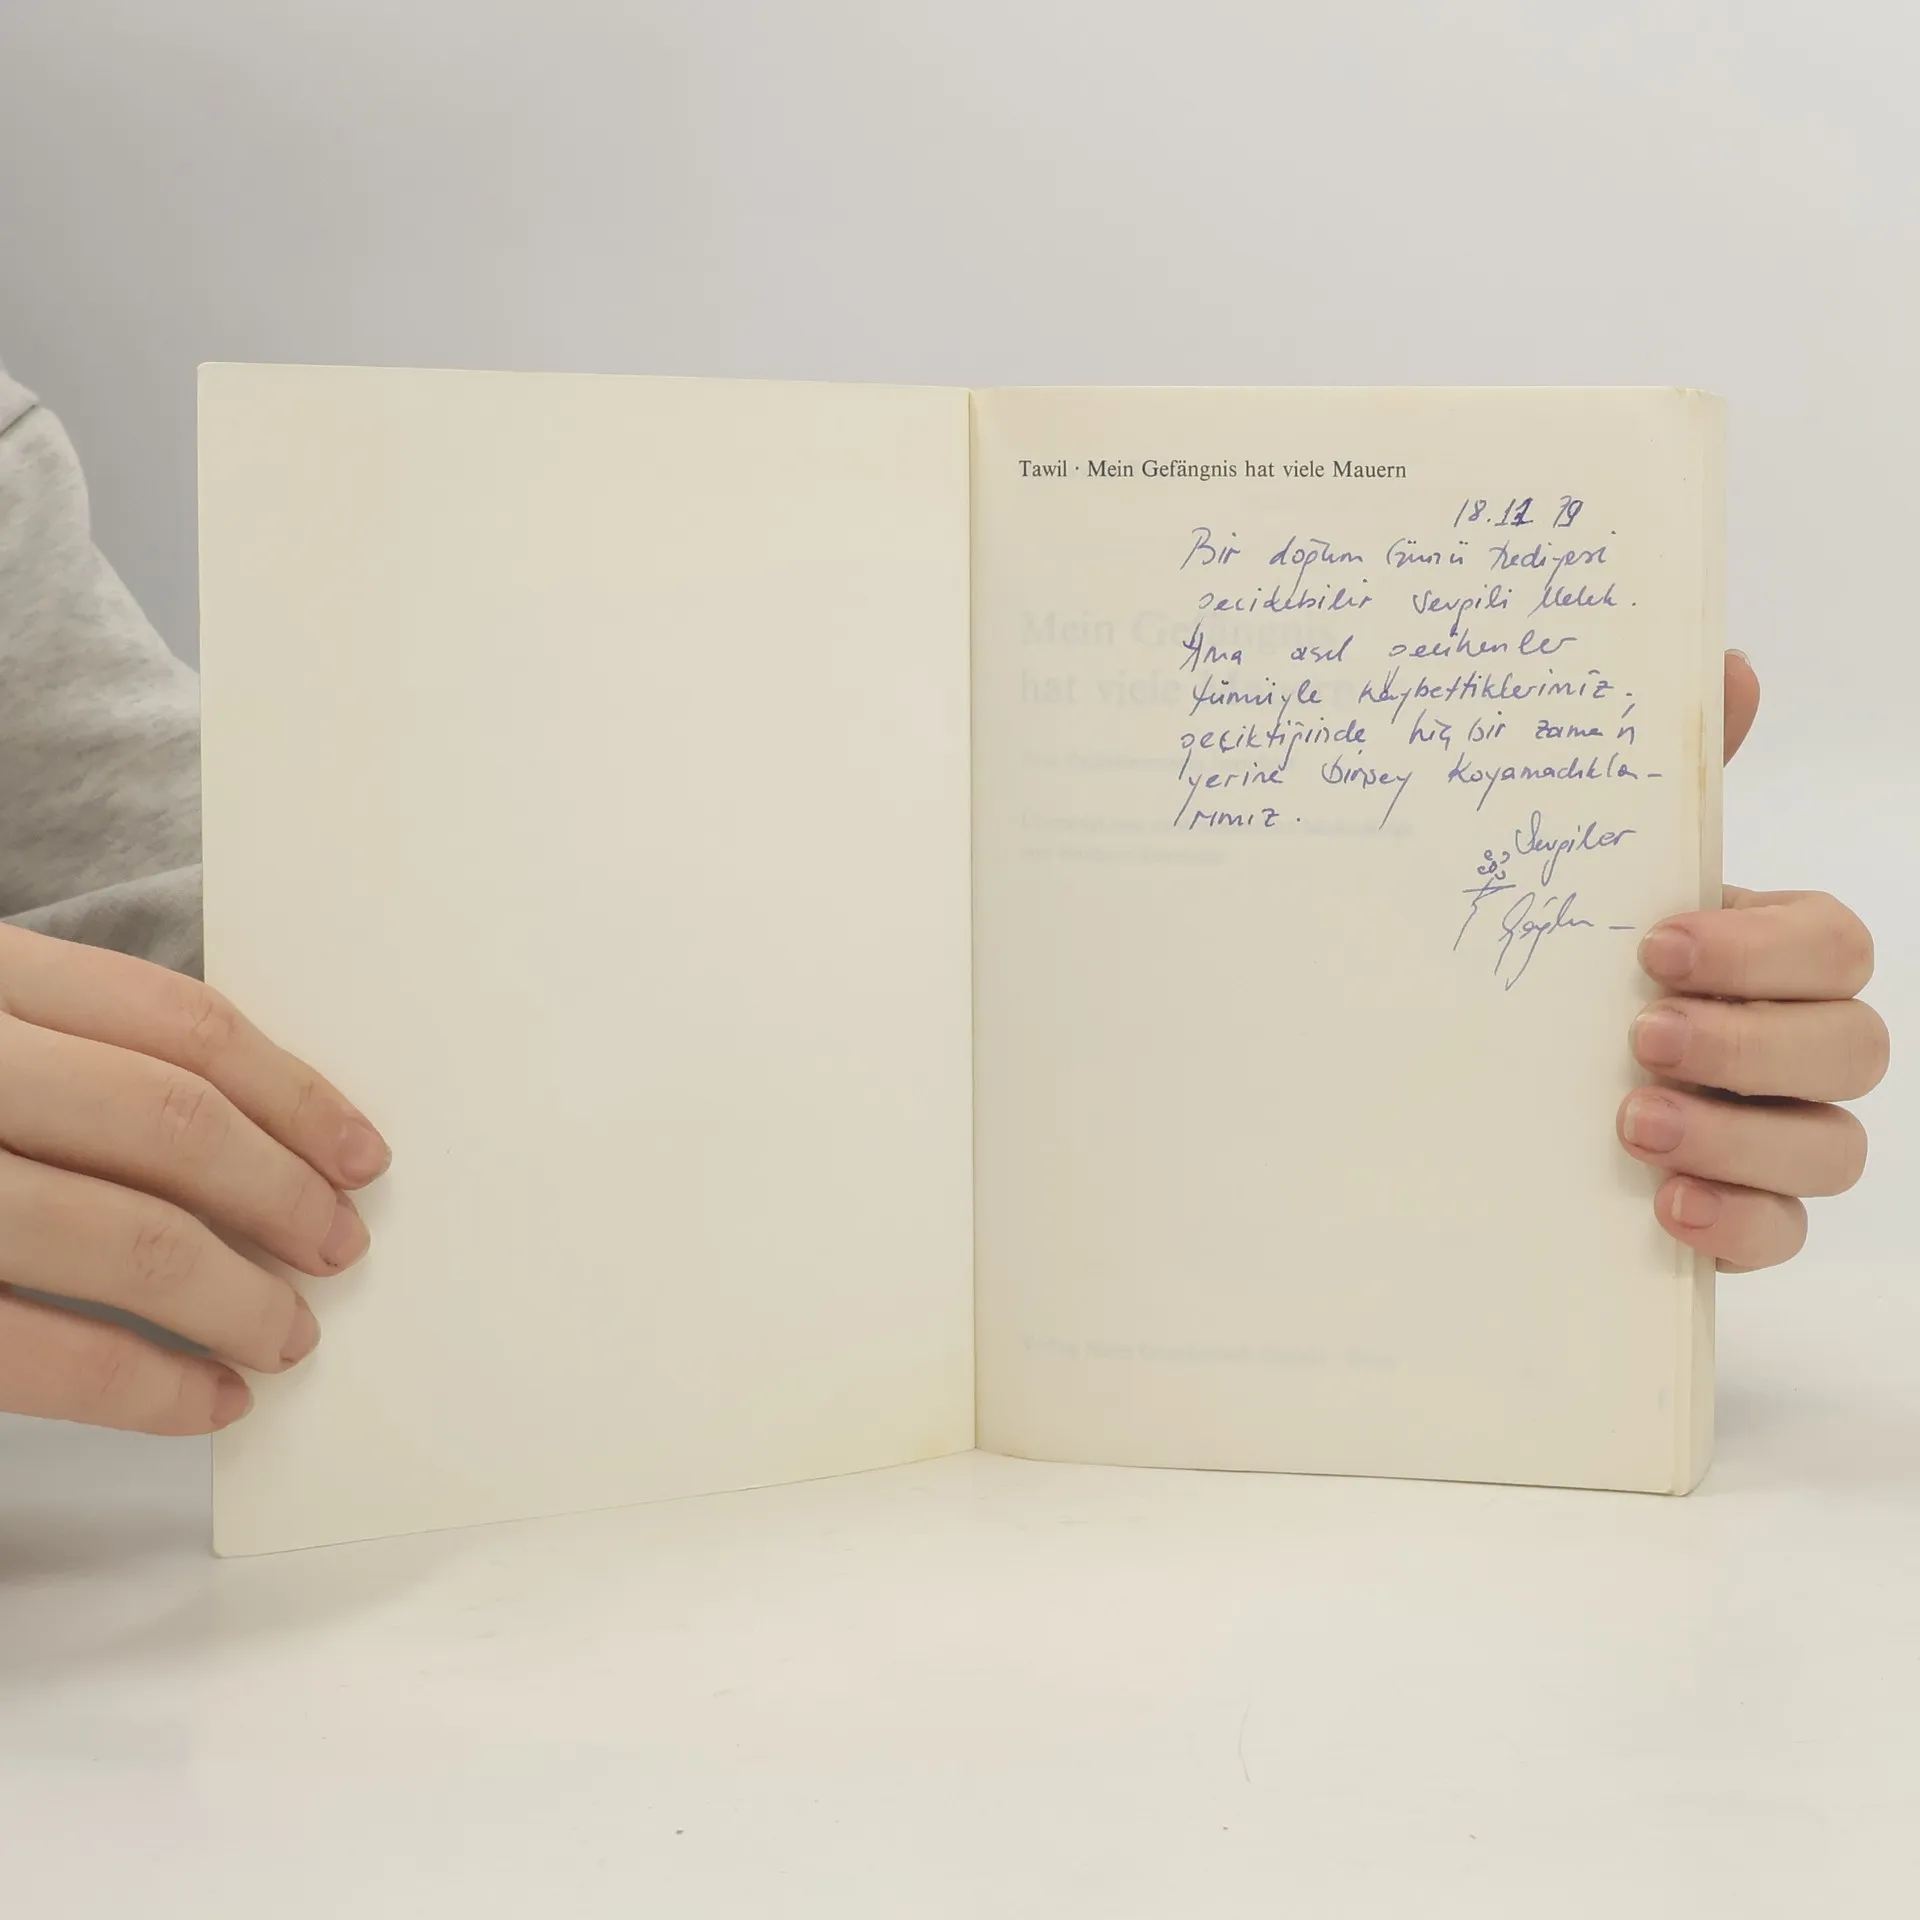 Tawil · Mein Gefängnis hat viele Mauern
18.11 79
Bir doğum Günü hediyesi
gecikebilir Sevgili Melek.
Ama asıl gecikenler
tümüyle kaybettiklerimiz;
geçiktiğinde hiç bir zaman
yerine birşey koyamadıkla-
rımız.
Sevgiler
Mein Gefängnis
hat viele Mauern